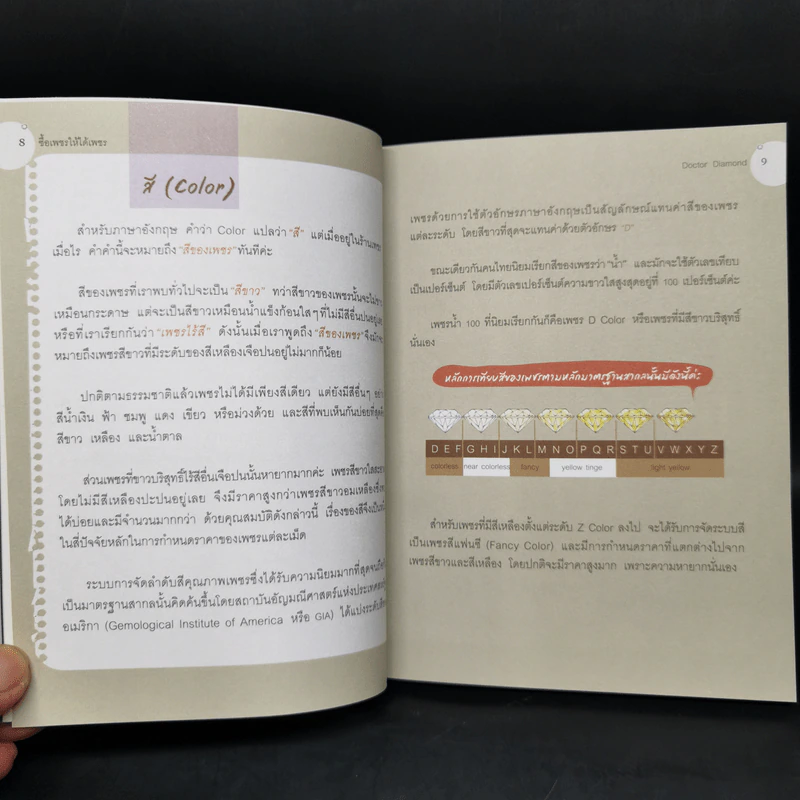 8
ซื้อเพชรให้ได้เพชร
สี (Color)
สำหรับภาษาอังกฤษ คำว่า Color แปลว่า "สี" แต่เมื่ออยู่ในร้านเพชร
เมื่อไร คำคำนี้จะหมายถึง "สีของเพชร" ทันทีค่ะ
สีของเพชรที่เราพบทั่วไปจะเป็น "สีขาว" ทว่าสีขาวของเพชรนั้นจะไม่ขาว
เหมือนกระดาษ แต่จะเป็นสีขาวเหมือนน้ำแข็งก้อนใสๆ ที่ไม่มีสีอื่นปนอยู่เลย
หรือที่เราเรียกกันว่า "เพชรไร้สี" ดังนั้นเมื่อเราพูดถึง "สีของเพชร" จึงมัก
หมายถึงเพชรสีขาวที่มีระดับของสีเหลืองเจือปนอยู่ไม่มากก็น้อย
ปกติตามธรรมชาติแล้วเพชรไม่ได้มีเพียงสีเดียว แต่ยังมีสีอื่นๆ อย่าง
สีน้ำเงิน ฟ้า ชมพู แดง เขียว หรือม่วงด้วย และสีที่พบเห็นกันบ่อยที่สุดคือ
สีขาว เหลือง และน้ำตาล
ส่วนเพชรที่ขาวบริสุทธิ์ไร้สีอื่นเจือปนนั้นหายากมากค่ะ เพชรสีขาวใสสะอาด
โดยไม่มีสีเหลืองปะปนอยู่เลย จึงมีราคาสูงกว่าเพชรสีขาวอมเหลืองซึ่ง
ได้บ่อยและมีจำนวนมากกว่า ด้วยคุณสมบัติดังกล่าวนี้ เรื่องของสีจึงเป็น
ในสี่ปัจจัยหลักในการกำหนดราคาของเพชรแต่ละเม็ด
ระบบการจัดลำดับสีคุณภาพเพชรซึ่งได้รับความนิยมมากที่สุดจน
เป็นมาตรฐานสากลนั้นคิดค้นขึ้นโดยสถาบันอัญมณีศาสตร์แห่งประเทศ
อเมริกา (Gemological Institute of America หรือ GIA) ได้แบ่งระดับสี
Doctor Diamond
9
เพชรด้วยการใช้ตัวอักษรภาษาอังกฤษเป็นสัญลักษณ์แทนค่าสีของเพชร
แต่ละระดับ โดยสีขาวที่สุดจะแทนค่าด้วยตัวอักษร "D"
ขณะเดียวกันคนไทยนิยมเรียกสีของเพชรว่า "น้ำ" และมักจะใช้ตัวเลขเทียบ
เป็นเปอร์เซ็นต์ โดยมีตัวเลขเปอร์เซ็นต์ความขาวใสสูงสุดอยู่ที่ 100 เปอร์เซ็นต์ค่ะ
เพชรน้ำ 100 ที่นิยมเรียกกันก็คือเพชร D Color หรือเพชรที่มีสีขาวบริสุทธิ์
นั่นเอง
หลักการเทียบสีของเพชรตามหลักมาตรฐานสากลนั้นมีดังนี้ค่ะ
D E F G H I J K L M N O P Q R S T U V W X Y Z
colorless near colorless fancy yellow tinge light yellow
สำหรับเพชรที่มีสีเหลืองตั้งแต่ระดับ Z Color ลงไป จะได้รับการจัดระบบสี
เป็นเพชรสีแฟนซี (Fancy Color) และมีการกำหนดราคาที่แตกต่างไปจาก
เพชรสีขาวและสีเหลือง โดยปกติจะมีราคาสูงมาก เพราะความหายากนั่นเอง